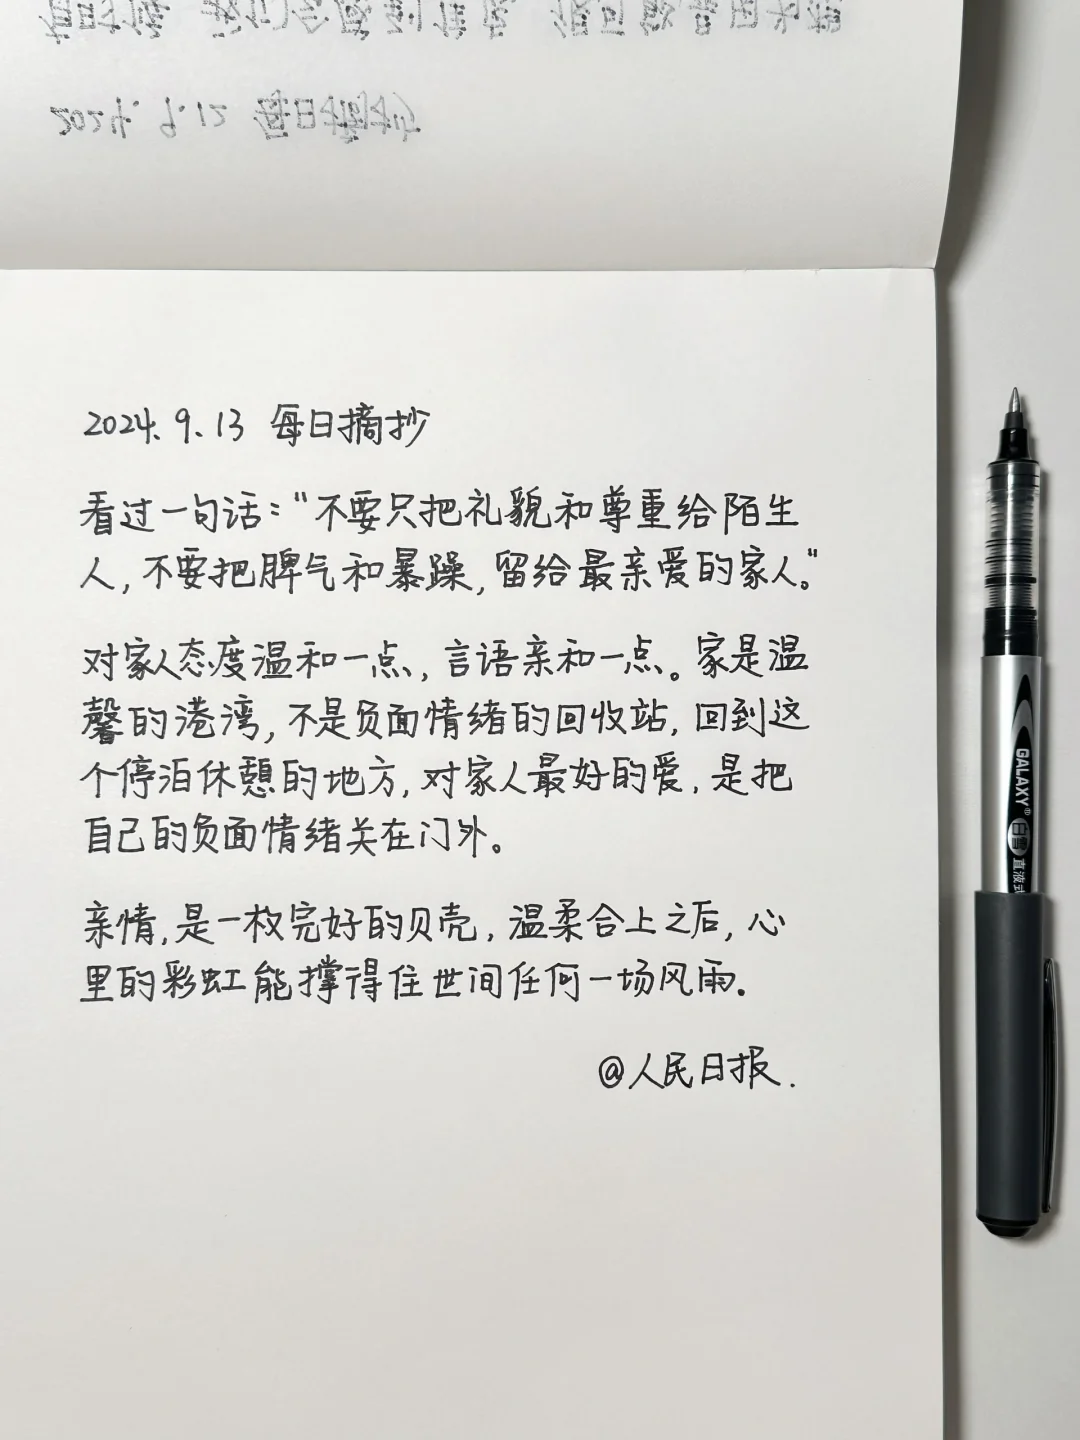 2024.9.12 每日摘抄
2024.9.13 每日摘抄
看过一句话："不要只把礼貌和尊重给陌生
人,不要把脾气和暴躁,留给最亲爱的家人。"
对家人态度温和一点,言语亲和一点。家是温
馨的港湾,不是负面情绪的回收站,回到这
个停泊休憩的地方,对家人最好的爱,是把
自己的负面情绪关在门外。
亲情,是一枚完好的贝壳,温柔合上之后,心
里的彩虹能撑得住世间任何一场风雨.
@人民日报.
GALAXY®
白雪
直液式